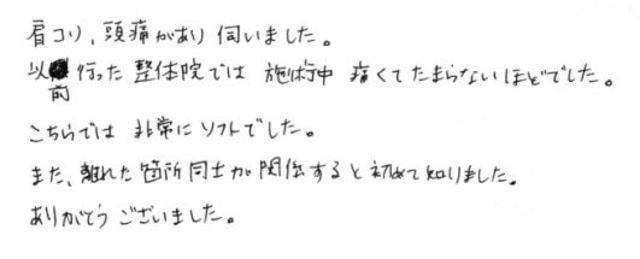 肩コリ、頭痛があり伺いました。
以前行った整体院では施術中痛くてたまらないほどでした。
こちらでは非常にソフトでした。
また、離れた箇所同士が関係すると初めて知りました。
ありがとうございました。